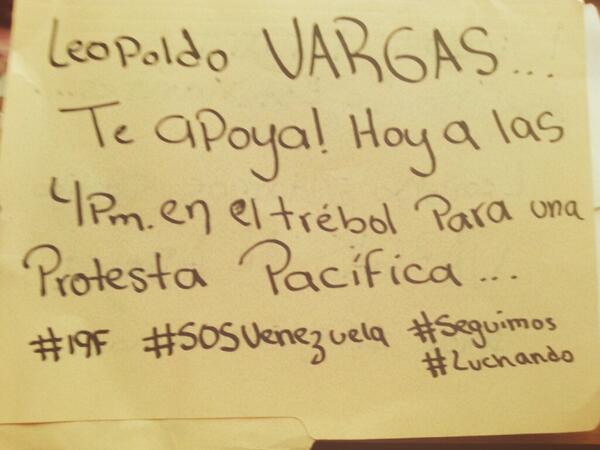 Leopoldo VARGAS...
Te apoya! Hoy a las
4Pm. en el trébol Para una
Protesta Pacífica...
#19F #SOSVenezuela #Seguimos
#Luchando